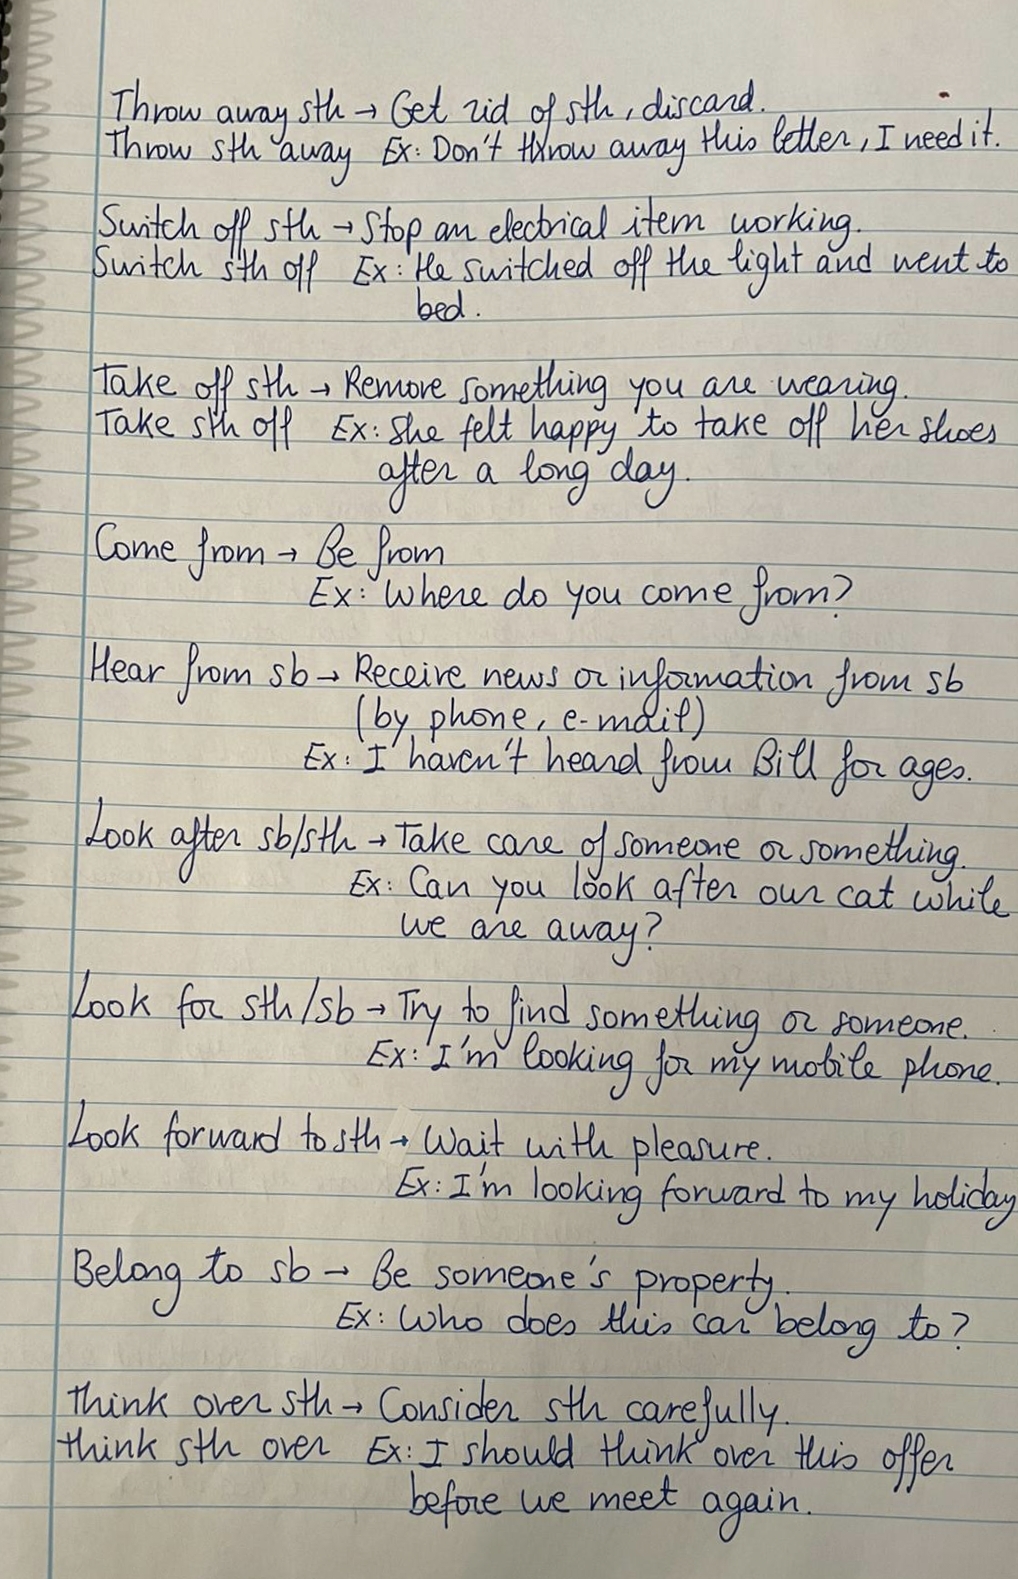 Throw away sth → Get rid of sth, discard.
Throw sth away Ex: Don't throw away this letter, I need it.
Switch off sth → Stop an electrical item working.
Switch sth off Ex: He switched off the light and went to
bed.
Take off sth → Remove something you are wearing.
Take sth off Ex: She felt happy to take off her shoes
after a long day.
Come from → Be from
Ex: Where do you come from?
Hear from sb → Receive news or information from sb
(by phone, e-mail)
Ex: I haven't heard from Bill for ages.
Look after sb/sth → Take care of someone or something.
Ex: Can you look after our cat while
we are away?
Look for sth/sb → Try to find something or someone.
Ex: I'm looking for my mobile phone.
Look forward to sth → Wait with pleasure.
Ex: I'm looking forward to my holiday
Belong to sb → Be someone's property.
Ex: Who does this car belong to?
Think over sth → Consider sth carefully.
think sth over Ex: I should think over this offer
before we meet again.